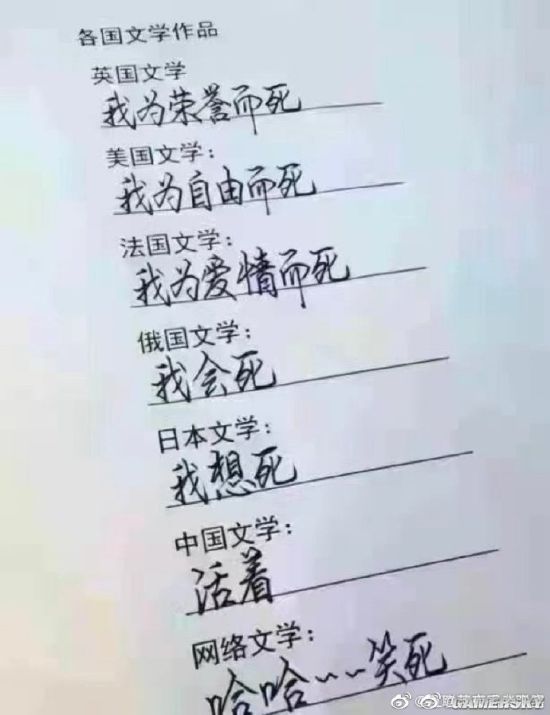 各国文学作品
英国文学
我为荣誉而死
美国文学：
我为自由而死
法国文学：
我为爱情而死
俄国文学：
我会死
日本文学：
我想死
中国文学：
活着
网络文学：
哈哈……笑死
GAMERSKY